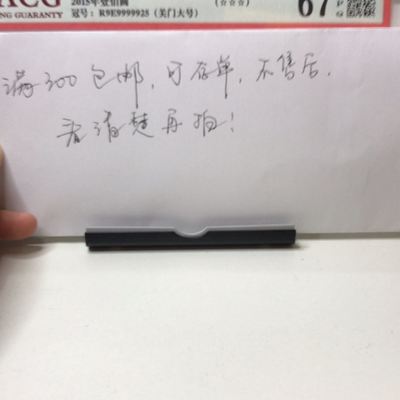 ACG
ING GUARANTY
2015年壹佰圆
冠号：R9E9999925（关门大号）
（☆☆☆）
67
P
G
满300包邮，可存单，不售后．
看清楚再拍！